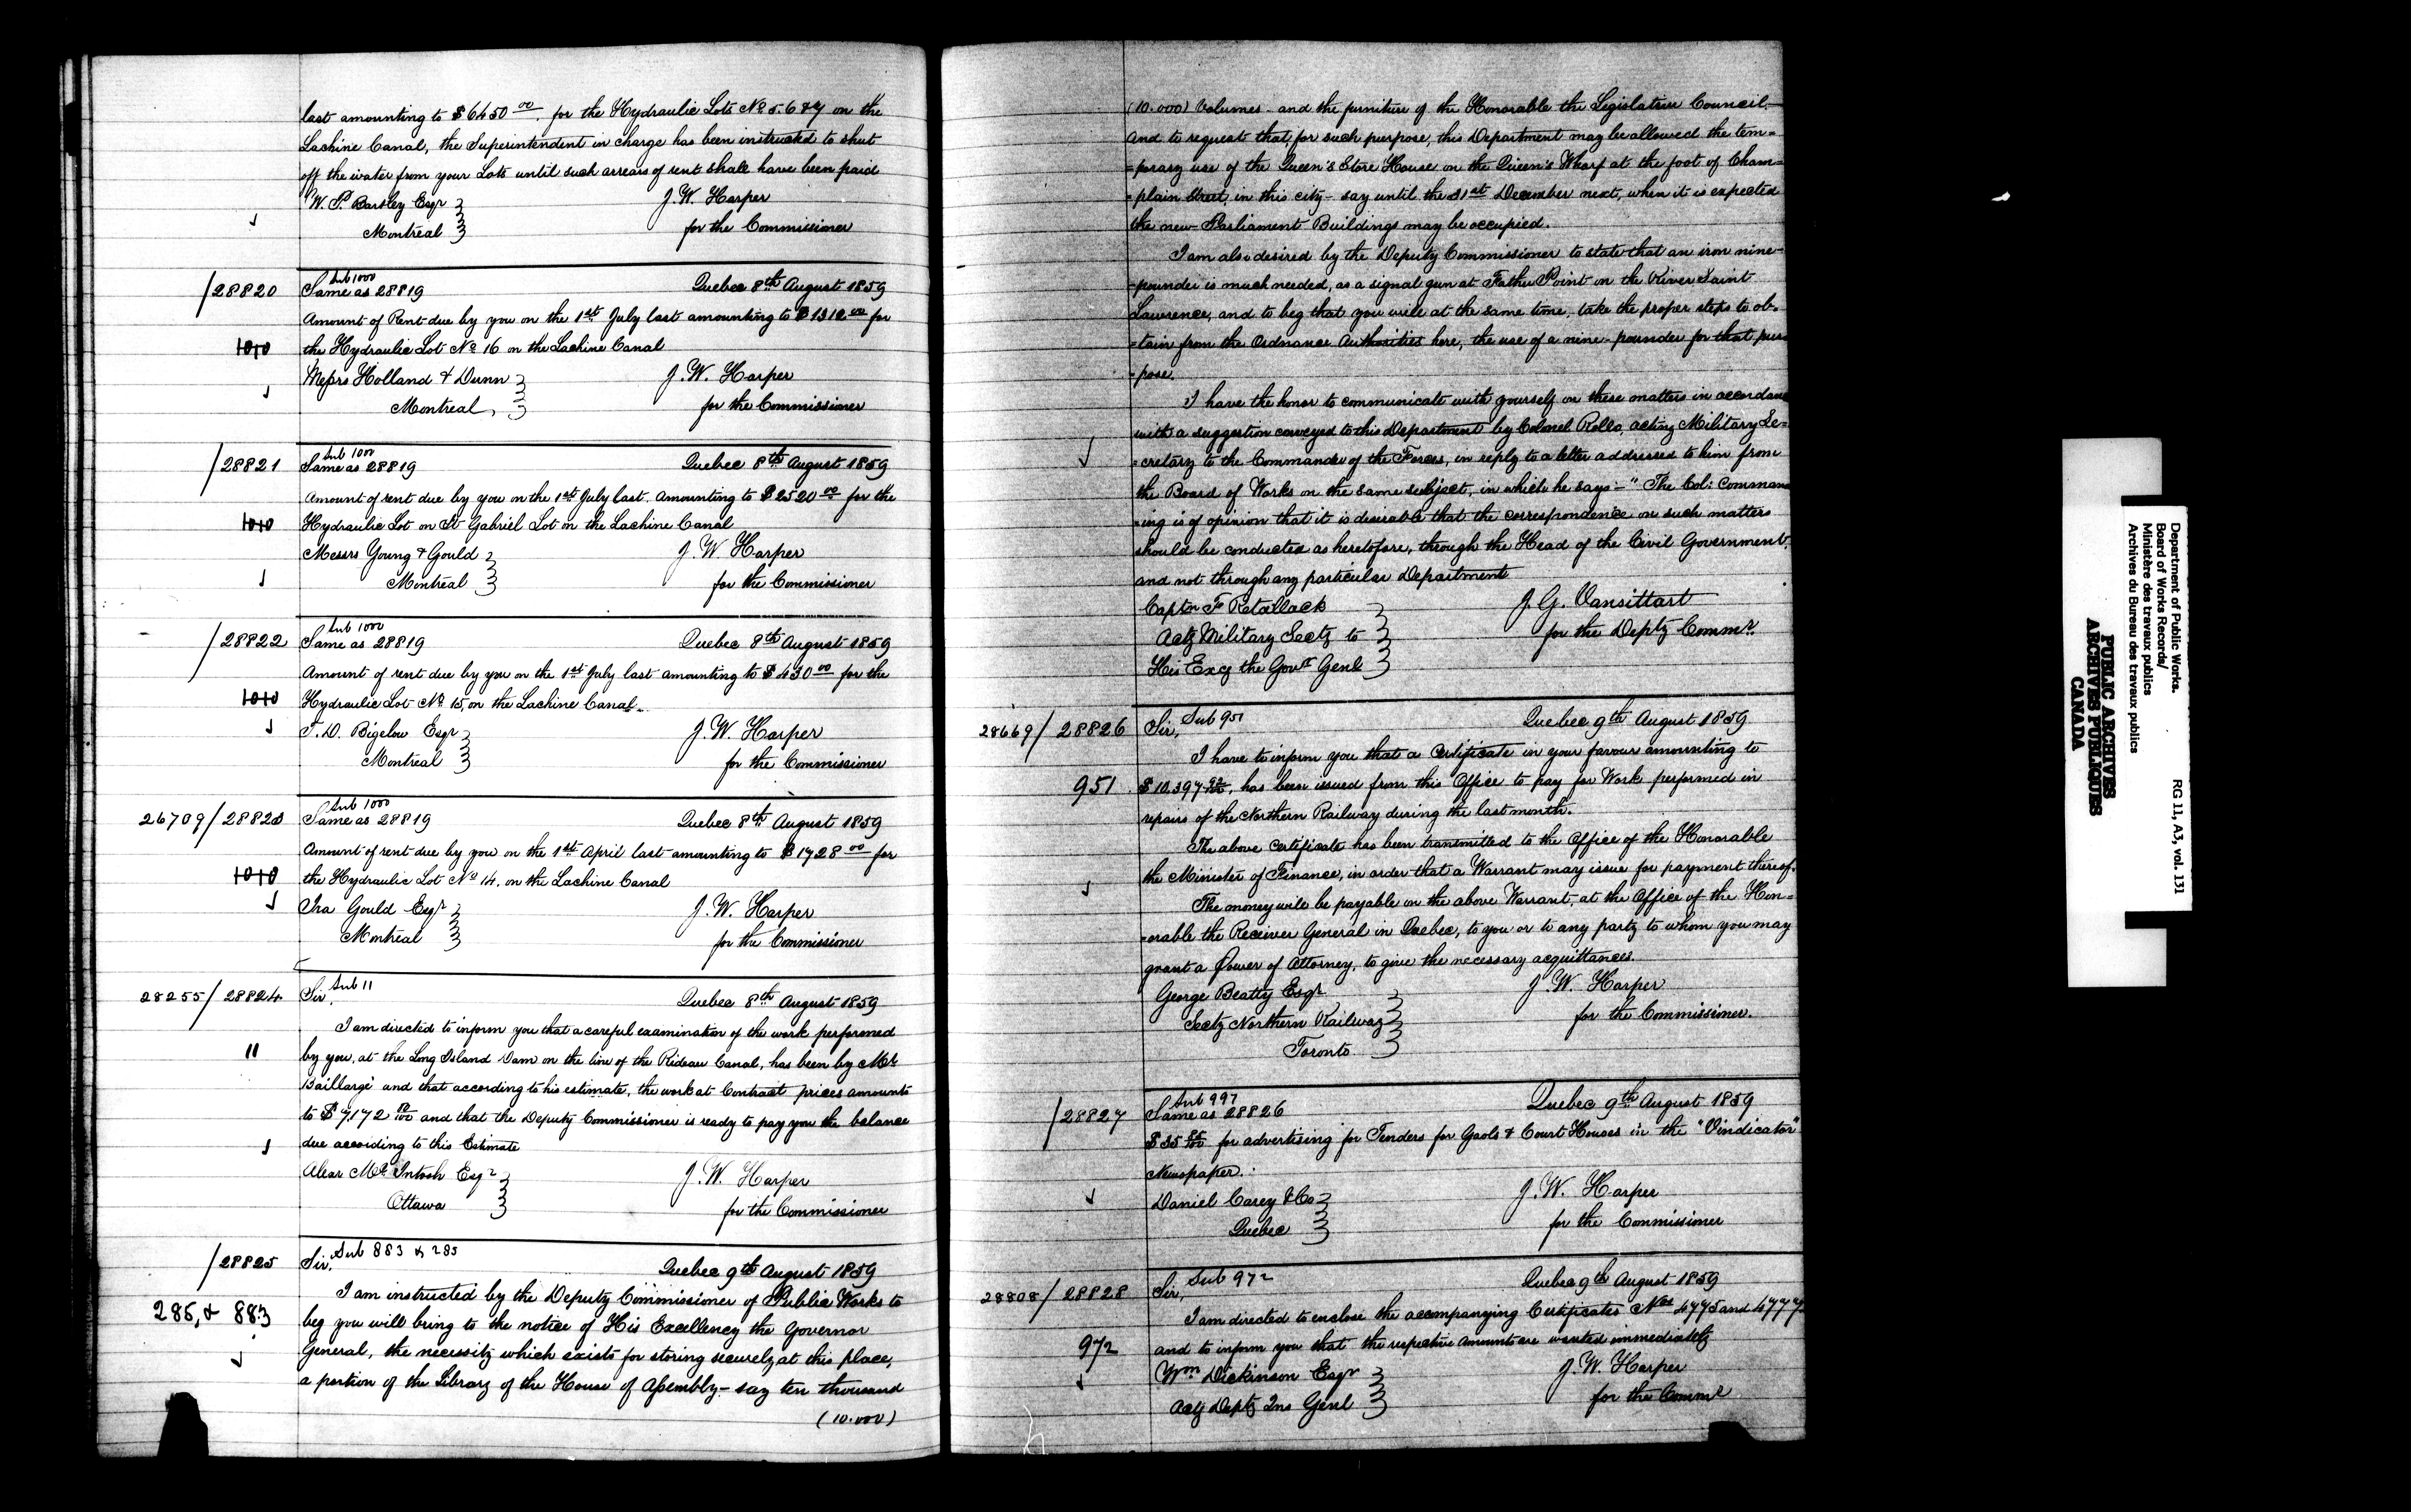 last amounting to $6450 00. for the Hydraulic Lots No 5. 6 & 7 on the
Lachine Canal, the Superintendent in charge has been instructed to shut
off the water from your Lots until such arrears of rent shall have been paid
W. P. Bartley Esqr
Montreal
J. W. Harper
for the Commissioner
/28820
Sub 1000
Same as 28819
Quebec 8th August 1859
Amount of Rent due by you on the 1st July last amounting to $1312 00 for
1010
the Hydraulic Lot No 16 on the Lachine Canal
Messrs Holland & Dunn
Montreal,
J. W. Harper
for the Commissioner
/28821
Sub 1000
Same as 28819
Quebec 8th August 1859
Amount of rent due by you on the 1st July last. amounting to $2520 00 for the
1010
Hydraulic Lot on St Gabriel Lot on the Lachine Canal
Messrs Young & Gould
Montreal
J. W Harper
for the Commissioner
/28822
Sub 1000
Same as 28819
Quebec 8th August 1859
Amount of rent due by you on the 1st July last amounting to $430 00 for the
1010
Hydraulic Lot No 15, on the Lachine Canal.
Bigelow Esqr
Montreal
J. W. Harper
for the Commissioner
26709/28823
Sub 1000
Same as 28819
Quebec 8th August 1859
Amount of rent due by you on the 1st April last amounting to $1728 00 for
1010
the Hydraulic Lot No 14. on the Lachine Canal
Ira Gould Esqr
Montreal
J. W. Harper
for the Commissioner
28255/28824
Sub 11
Sir,
Quebec 8th August 1859
I am directed to inform you that a careful examination of the work performed
11
by you, at the Long Island Dam on the line of the Rideau Canal, has been by Mr
Baillargé and that according to his estimate, the work at Contract prices amounts
to $7,172 and that the Deputy Commissioner is ready to pay you the balance
due according to this Estimate
Alexr McIntosh Esqr
Ottawa
J. W. Harper
for the Commissioner
/28825
Sub 883 & 285
Sir,
Quebec 9th August 1859
I am instructed by the Deputy Commissioner of Public Works to
285, & 883
beg you will bring to the notice of His Excellency the Governor
General, the necessity which exists for storing securely at this place,
a portion of the Library of the House of Assembly – say ten thousand
(10.000)
(10.000) Volumes – and the furniture of the Honorable the Legislative Council,–
and to request that, for such purpose, this Department may be allowed the tem=
=porary use of the Queen's Store House on the Queen's Wharf at the foot of Cham=
=plain Street, in this city – say until the 31st December next, when it is expected
the new Parliament Buildings may be occupied.
I am also desired by the Deputy Commissioner to state that an iron nine-
-pounder is much needed, as a signal gun at Father Point on the River Saint
Lawrence, and to beg that you will at the same time, take the proper steps to ob=
=tain from the Ordnance Authorities here, the use of a nine-pounder for that pur=
=pose.
I have the honor to communicate with yourself on these matters in accordance
with a suggestion conveyed to this Department by Colonel Rollo, acting Military Se=
=cretary to the Commander of the Forces, in reply to a letter addressed to him from
the Board of Works on the same subject, in which he says – "The Col: Command
=ing is of opinion that it is desirable that the correspondence on such matters
should be conducted as heretofore, through the Head of the Civil Government,
and not through any particular Department
Captn F Retallack
Actg Military Secty to
His Excy the Govr Genl
J. G. Vansittart
for the Depty Commr.
28669/28826
Sub 951
Sir,
Quebec 9th August 1859
I have to inform you that a Certificate in your favour amounting to
951
$10.397 92/100, has been issued from this Office to pay for Work performed in
repairs of the Northern Railway during the last month.
The above Certificate has been transmitted to the Office of the Honorable
the Minister of Finance, in order that a Warrant may issue for payment thereof.
The money will be payable on the above Warrant, at the Office of the Hon=
=orable the Receiver General in Quebec, to you or to any party to whom you may
grant a Power of Attorney, to give the necessary acquittances.
George Beatty Esqr
Secty Northern Railway
Toronto
J. W. Harper
for the Commissioner.
/28827
Sub 997
Same as 28826
Quebec 9th August 1859
$35 for advertising for Tenders for Gaols & Court Houses in the "Vindicator"
Newspaper.
Daniel Carey & Co
Quebec
J. W. Harper
for the Commissioner
28808/28828
Sub 972
Sir,
Quebec 9th August 1859
I am directed to enclose the accompanying Certificates Nos 4775 and 4777
972
and to inform you that the respective amounts are wanted immediately
Wm Dickinson Esqr
Actg Depty Ins Genl
J. W. Harper
for the Commr
Department of Public Works.
Board of Works Records/
Ministère des travaux publics
Archives du Bureau des travaux publics
RG 11, A3, vol. 131
PUBLIC ARCHIVES
ARCHIVES PUBLIQUES
CANADA